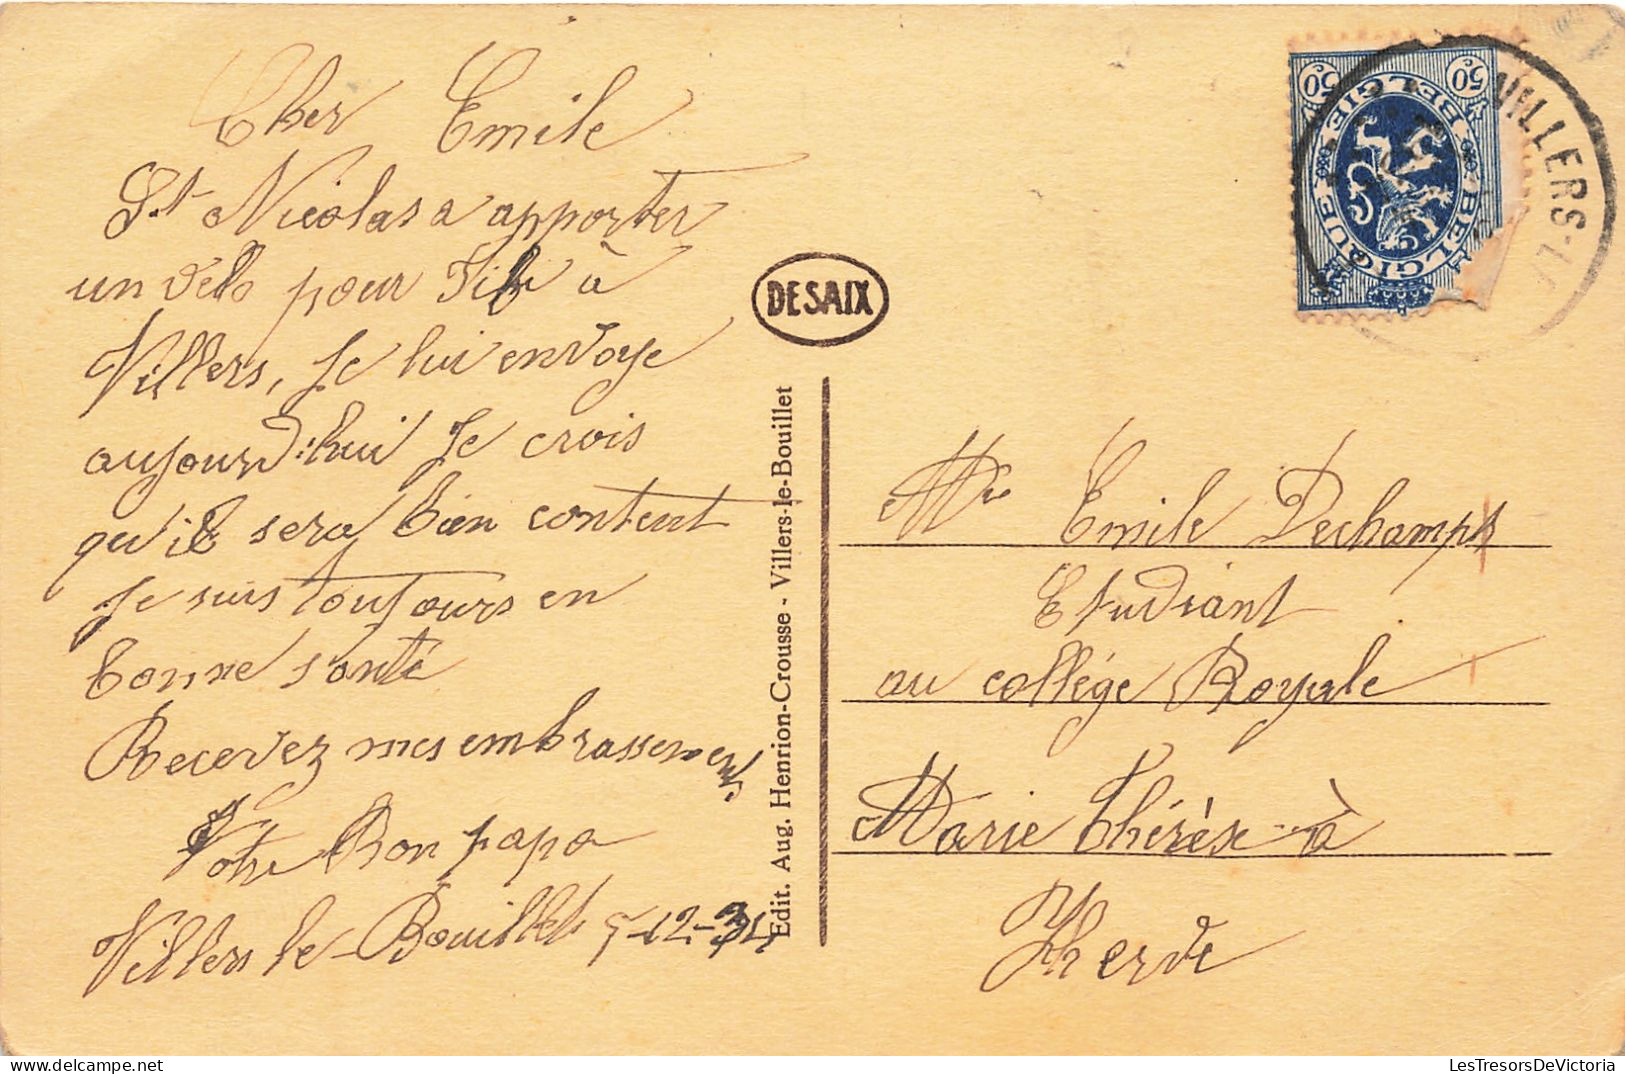 Cher Emile
St Nicolas a apporter
un vélo pour à
Villers, Je lui envoye
aujourd'hui Je crois
qu'il sera bien content
Je suis toujours en
bonne santé
Recevez mes embrassements.
Votre Bon papa
Villers le-Bouillet 5-12-34
DESAIX
Edit. Aug. Henrion-Crousse - Villers-le-Bouillet
50c 50c
BELGIE BELGIQUE BELGIE
VILLERS-L
Mr Emile Dechamps
Etudiant
au collége Royale
Marie Thérèse à
Herve
LesTresorsDeVictoria